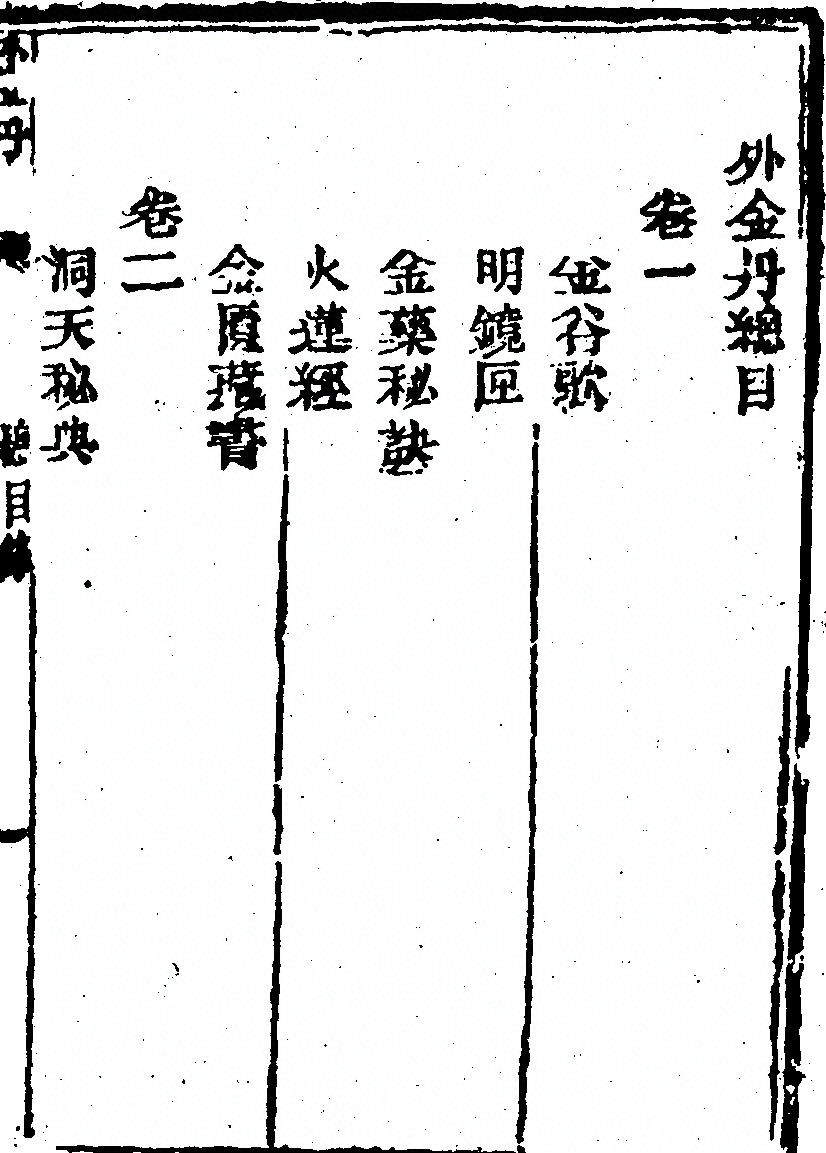 外金丹總目
卷一
金谷歌
明鏡匣
金藥秘訣
火蓮經
金匱瑤書
卷二
洞天秘典
總目錄